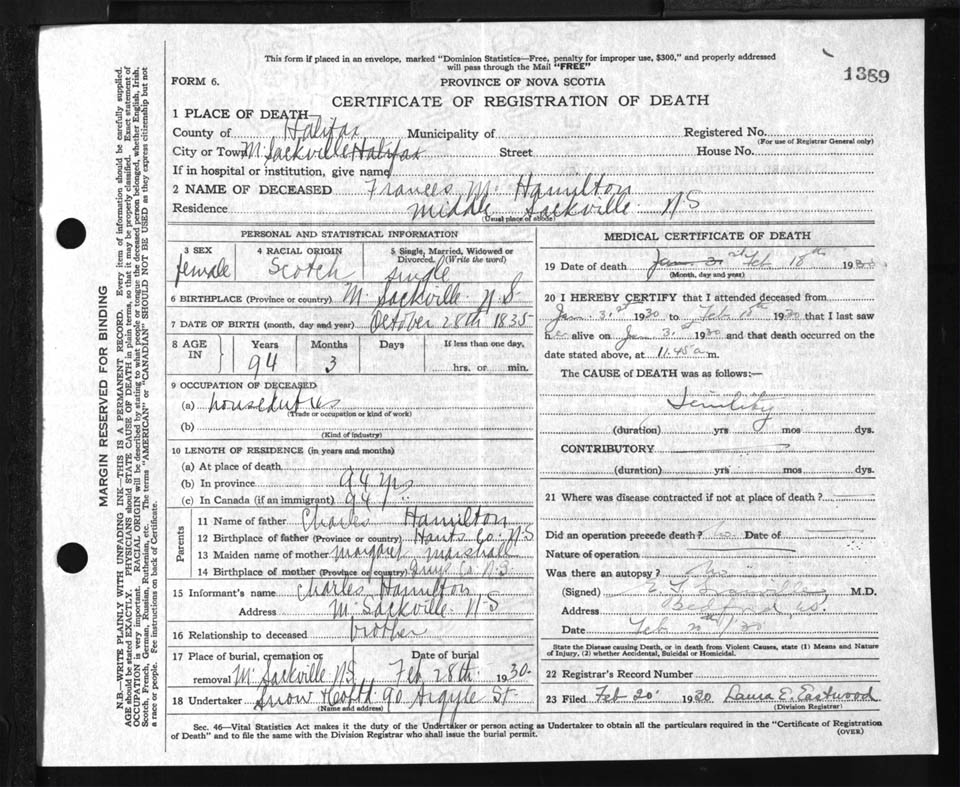 This form if placed in an envelope, marked "Dominion Statistics—Free, penalty for improper use, $300," and properly addressed
will pass through the Mail "FREE"
1389
FORM 6.
PROVINCE OF NOVA SCOTIA
CERTIFICATE OF REGISTRATION OF DEATH
1 PLACE OF DEATH
County of Halifax Municipality of Registered No.
(For use of Registrar General only)
City or Town M. Sackville Halifax Street House No.
If in hospital or institution, give name
2 NAME OF DECEASED Frances M. Hamilton
Residence Middle Sackville N S
(Usual place of abode)
PERSONAL AND STATISTICAL INFORMATION
3 SEX 4 RACIAL ORIGIN 5 Single, Married, Widowed or
Divorced (Write the word)
female Scotch single
6 BIRTHPLACE (Province or country) M. Sackville N S
7 DATE OF BIRTH (month, day and year) October 28th 1835
8 AGE IN Years Months Days If less than one day,
94 3 hrs. or min.
9 OCCUPATION OF DECEASED
(a)
(Trade or occupation or kind of work)
(b)
(Kind of industry)
10 LENGTH OF RESIDENCE (in years and months)
(a) At place of death
(b) In province 94 yrs
(c) In Canada (if an immigrant) 94 "
Parents
11 Name of father Charles Hamilton
12 Birthplace of father (Province or country) Hants Co. N S
13 Maiden name of mother Margaret Marshall
14 Birthplace of mother (Province or country)
15 Informant's name Charles Hamilton
Address M. Sackville N S
16 Relationship to deceased brother
17 Place of burial, cremation or Date of burial
removal M. Sackville N S. Feb 28th 1930
18 Undertaker Snow & Co Ltd 90 Argyle St.
(Name and address)
MEDICAL CERTIFICATE OF DEATH
19 Date of death Jan 31st Feb 18th 1930
(Month, day and year)
20 I HEREBY CERTIFY that I attended deceased from
Jan. 31st 1930 to Feb 18th 1930 that I last saw
her alive on Jan 31st 1930 and that death occurred on the
date stated above, at 11.45 a m.
The CAUSE of DEATH was as follows:—
Senility
(duration) yrs mos dys.
CONTRIBUTORY
(duration) yrs. mos. dys.
21 Where was disease contracted if not at place of death?
Did an operation precede death? No Date of
Nature of operation
Was there an autopsy? No
(Signed) M.D.
Address Bedford N.S.
Date Feb 20th / 30
State the Disease causing Death, or in death from Violent Causes, state (1) Means and Nature
of Injury, (2) whether Accidental, Suicidal or Homicidal.
22 Registrar's Record Number
23 Filed Feb 20 1930 Laura E. Eastwood
(Division Registrar)
Sec. 46—Vital Statistics Act makes it the duty of the Undertaker or person acting as Undertaker to obtain all the particulars required in the "Certificate of Registration
of Death" and to file the same with the Division Registrar who shall issue the burial permit.
(OVER)
MARGIN RESERVED FOR BINDING
N.B.—WRITE PLAINLY WITH UNFADING INK—THIS IS A PERMANENT RECORD. Every item of information should be carefully supplied.
AGE should be stated EXACTLY. PHYSICIANS should STATE CAUSE OF DEATH in plain terms, so that it may be properly classified. Exact statement of
OCCUPATION is very important. RACIAL ORIGIN will be described by stating to what people or tongue the deceased person belonged, whether English, Irish,
Scotch, French, German, Russian, Ruthenian, etc. The terms "AMERICAN" or "CANADIAN" SHOULD NOT BE USED as they express citizenship but not
a race or people. Fee instructions on back of Certificate.